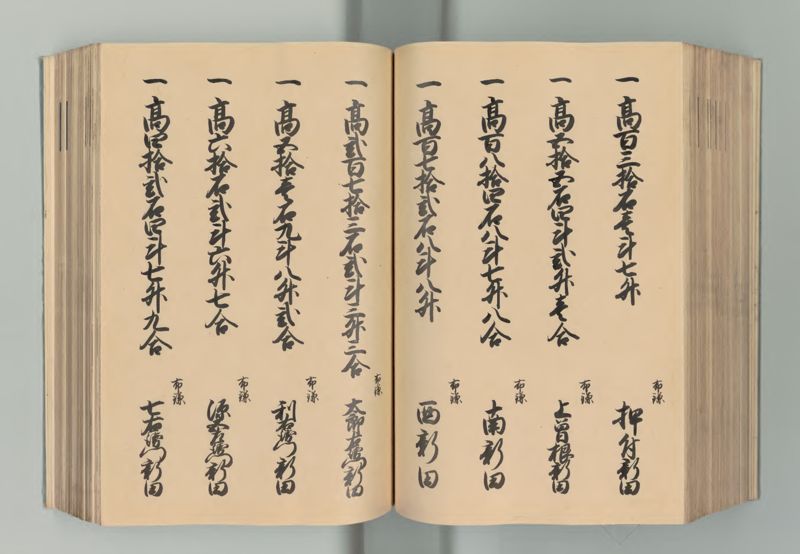 一 高百三拾石壱斗七升 布鎌 押付新田
一 高五拾五石四斗弐升壱合 布鎌 上曽根新田
一 高百八拾四石八斗七升八合 布鎌 南新田
一 高百七拾弐石八斗八升 布鎌 西新田
一 高弐百七拾三石弐斗三升三合 布鎌 太郎右衛門新田
一 高五拾壱石九斗八升弐合 布鎌 利右衛門新田
一 高六拾石弐斗六升七合 布鎌 源 衛門新田
一 高四拾弐石四斗七升九合 布鎌 七右衛門新田